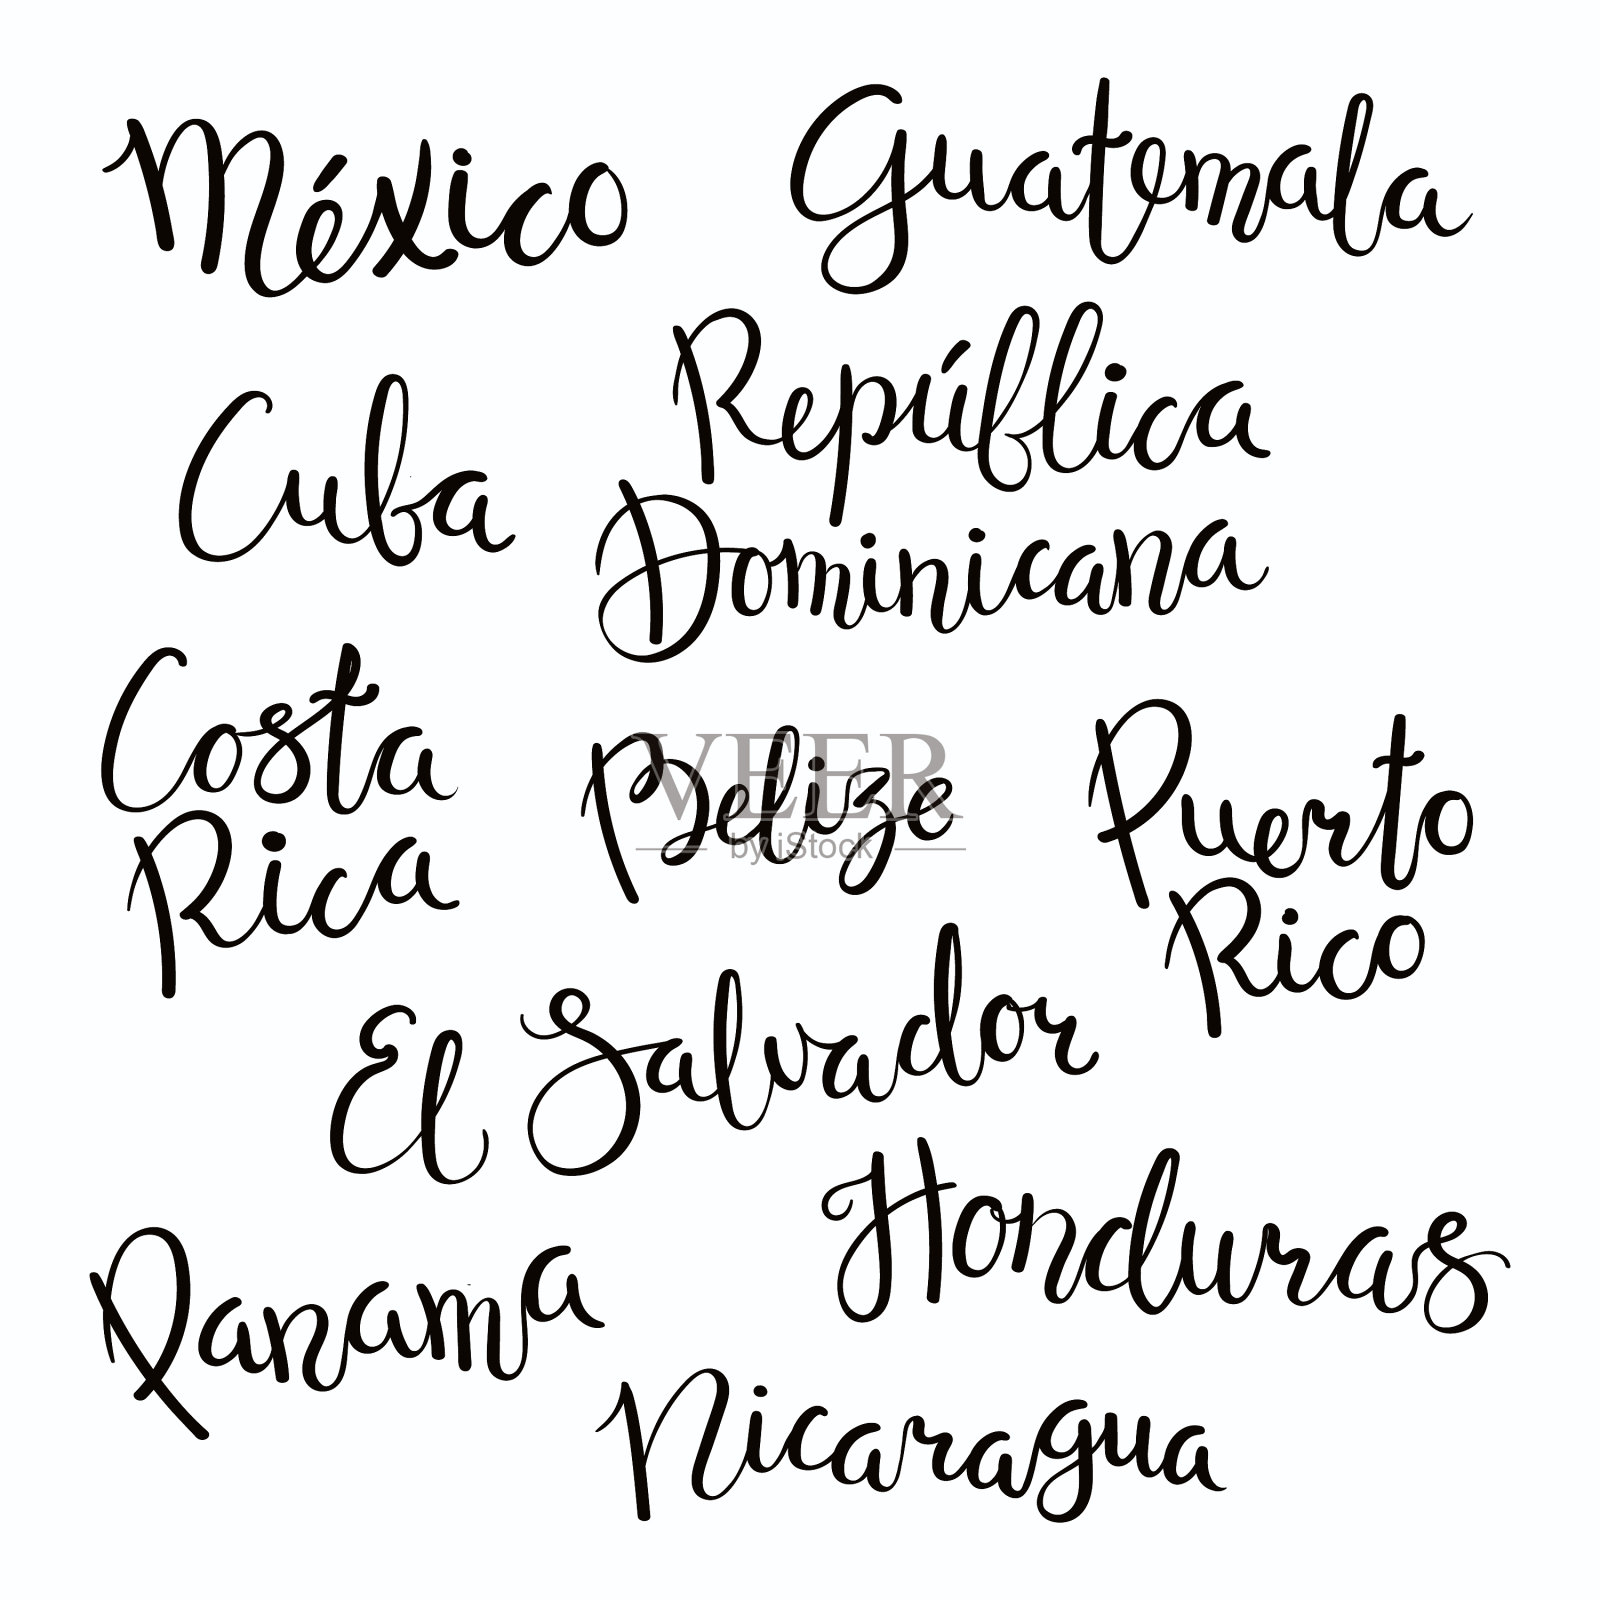 México
Guatemala
Cuba
República
Dominicana
Costa
Rica
Belize
Puerto
Rico
VEER
by iStock
El Salvador
Honduras
Panama
Nicaragua